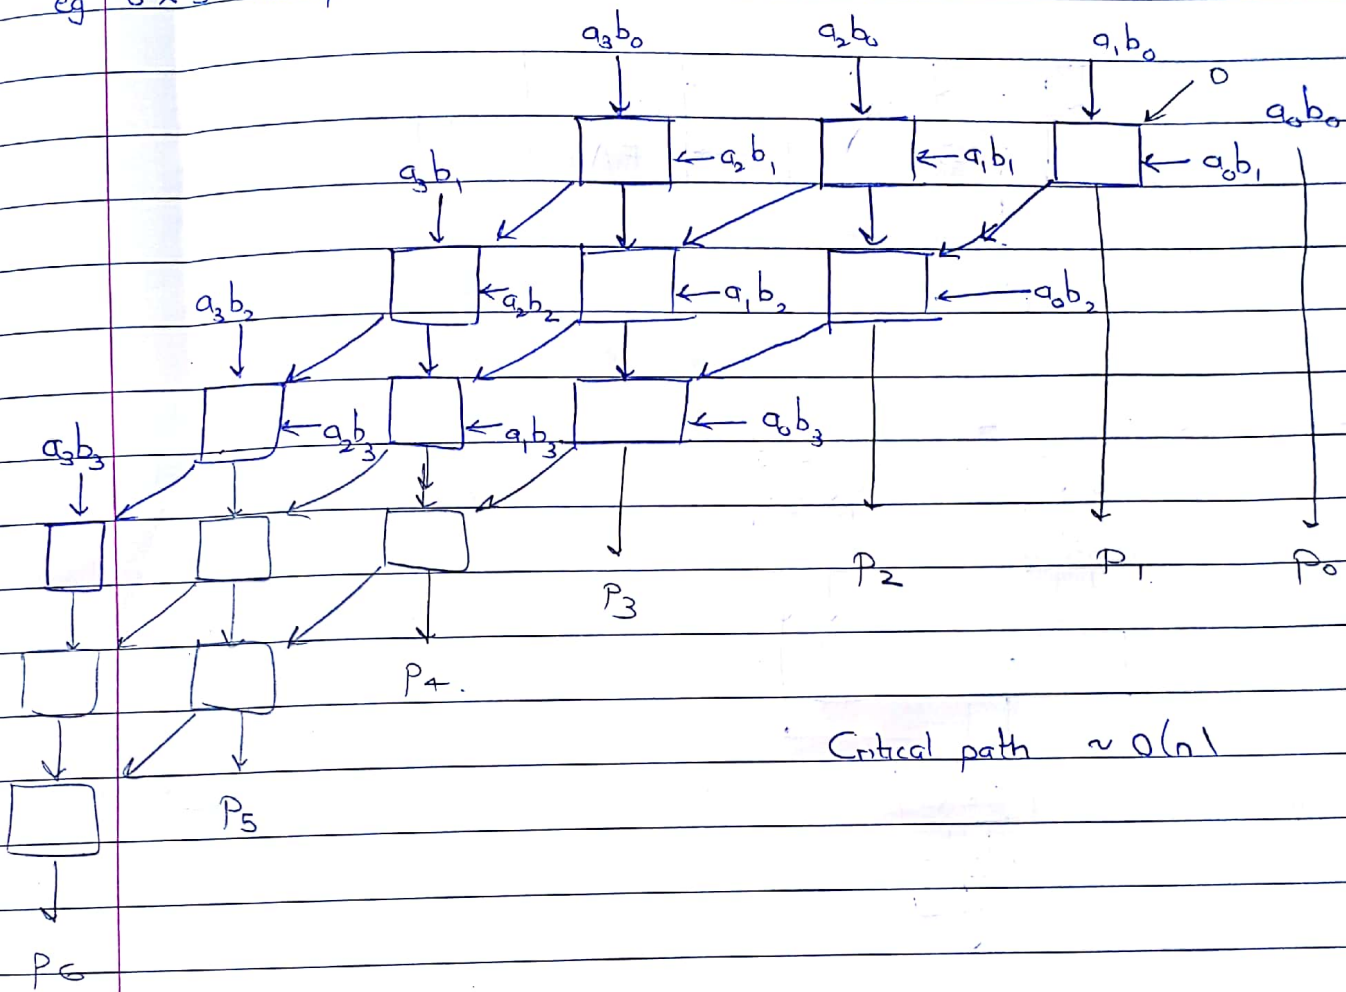 eg
a₃b₀ a₂b₀ a₁b₀
0
a₀b₀
a₃b₁ ←a₂b₁ ←a₁b₁ ← a₀b₁
a₃b₂ ←a₂b₂ ←a₁b₂ ← a₀b₂
a₃b₃ ←a₂b₃ ←a₁b₃ ← a₀b₃
P₃ P₂ P₁ P₀
P₄.
Critical path ~ O(n)
P₅
P₆